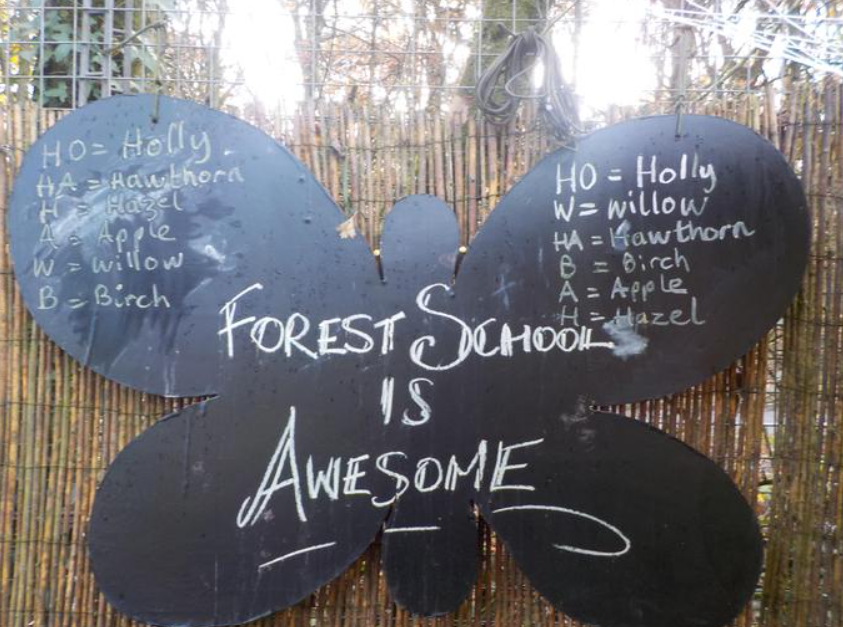 HO = Holly
HA = Hawthorn
H = Hazel
A = Apple
W = willow
B = Birch
HO = Holly
W = willow
HA = Hawthorn
B = Birch
A = Apple
H = Hazel
FOREST SCHOOL
IS
AWESOME